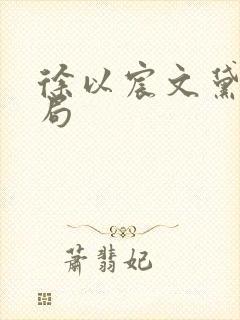 徐以宸文黛
局
萧翡妃